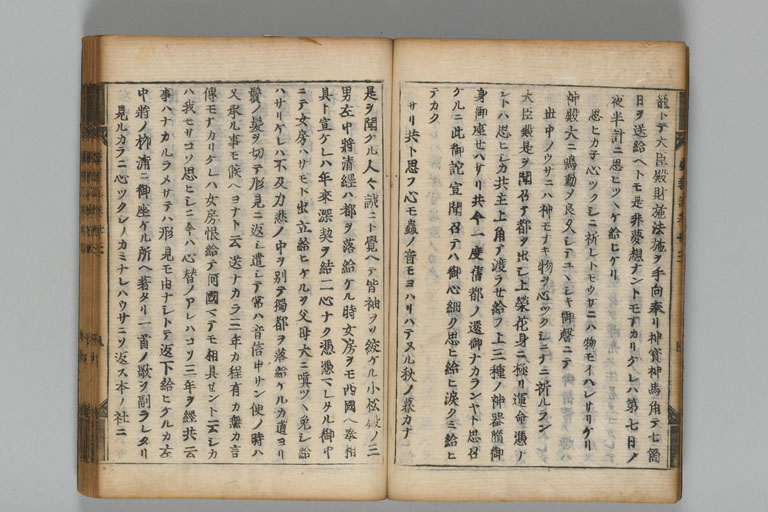 籠トテ大臣殿財施法施ヲ手向奉リ神寳神馬角テ七箇
日ヲ送給ヘトモ是非夢想ナントモナカリケレハ第七日ノ
夜半計ニ思ヒツヽケ給ヒケリ
思ヒカテ心ツクシニ祈レトモウサニハ物モイハレサリケリ
神殿大ニ鳴動ヲ良久シテユヽシキ御聲ニテ
世中ノウサニハ神モナキ物ヲ心ツクシニナニ祈ルラン
大臣殿是ヲ聞召テ都ヲ出シ上榮花身ニ極リ運命憑ナ
シトハ思ヒシカ共主上角テ渡ラセ給フ上三種ノ神器隨御
身御座セハサリ共今一度舊都ノ還御ナカランヤト思召
ケルニ此御詫宣聞召テハ御心細ク思ヒ給ヒ涙クミ給ヒ
テカク
サリ共ト思フ心モ蟲ノ音モヨハリハテヌル秋ノ暮カナ
是ヲ聞ケル人々誠ニト覺ヘテ皆袖ヲソ絞ケル小松殿ノ三
男左中將清經ハ都ヲ落給ケル時女房ヲモ西國ヘ奉相
具ト宣ケレハ年來深契ヲ結ニ心ナク憑憑マレタル御中
ニテ女房ハサモト出立給ヒケルヲ父母大ニ嗔ツヽ免シ給
ハサリケレハ不及力悲ノ中ヲ別テ獨都ヲ落給ケルカ道ヨリ
鬢ノ髪ヲ切テ形見ニ返シ遣シテ常ハ音信申サン便ノ時ハ
又承ル事モ候ヘヨナト云送ナカラ三年カ程有カ無カ言
傳モナカリケレハ女房恨給テ何國マテモ相具セント云シカ
ハ我モサコソ思ヒシニ今ハ心替ノアレハコソ三年ヲ經共云
事ハナカルラメサテハ形見モ由ナシトテ返下給ヒケルカ左
中將ノ柳浦ニ御座ケル所ヘ著タリ一首ノ歌ヲ副ラレタリ
見ルカラニ心ツクシノカミナレハウサニソ返ス本ノ社ニ